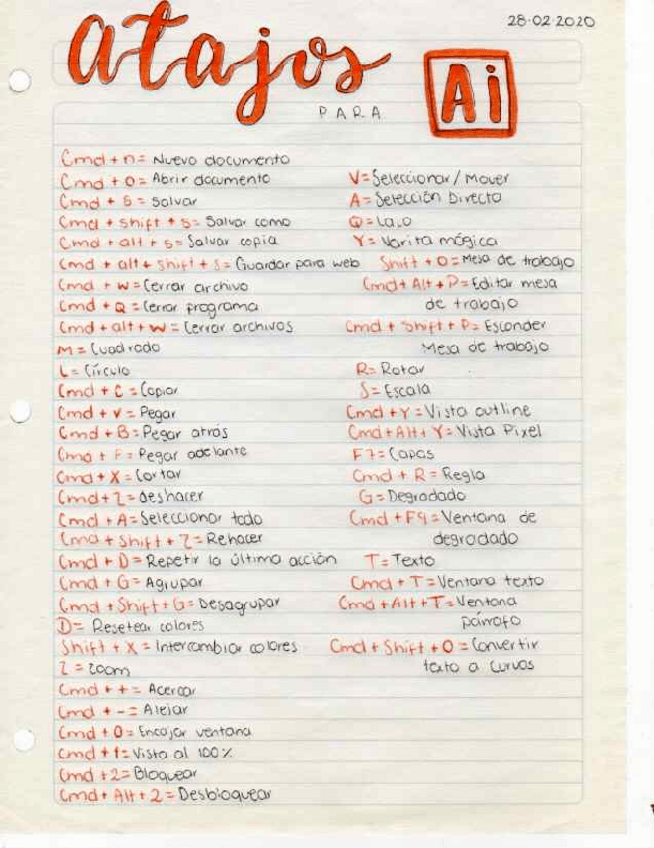 28-02-2020
atajos
PARA
Ai
Cmd + n = Nuevo documento
Cmd + o = Abrir documento
Cmd + S = Salvar
Cmd + shift + s = Salvar como
Cmd + alt + s = Salvar copia
Cmd + alt + shift + s = Guardar para web
Cmd + w = Cerrar archivo
Cmd + Q = Cerrar programa
Cmd + alt + w = Cerrar archivos
M = Cuadrado
L = Círculo
Cmd + C = Copiar
Cmd + V = Pegar
Cmd + B = Pegar atrás
Cmd + F = Pegar adelante
Cmd + X = Cortar
Cmd + Z = deshacer
Cmd + A = Seleccionar todo
Cmd + Shift + Z = Rehacer
Cmd + D = Repetir la última acción
Cmd + G = Agrupar
Cmd + Shift + G = Desagrupar
D = Resetear colores
Shift + X = Intercambiar colores
Z = zoom
Cmd + + = Acercar
Cmd + - = Alejar
Cmd + 0 = Encajar ventana
Cmd + 1 = Vista al 100%
Cmd + 2 = Bloquear
Cmd + Alt + 2 = Desbloquear
V = Seleccionar / Mover
A = Selección Directo
Q = Lazo
Y = Varita mágica
Shift + O = Mesa de trabajo
Cmd + Alt + P = Editar mesa
de trabajo
Cmd + Shift + P = Esconder
Mesa de trabajo
R = Rotar
S = Escala
Cmd + Y = Vista outline
Cmd + Alt + Y = Vista Pixel
F7 = Capas
Cmd + R = Regla
G = Degradado
Cmd + F9 = Ventana de
degradado
T = Texto
Cmd + T = Ventana texto
Cmd + Alt + T = Ventana
párrafo
Cmd + Shift + O = Convertir
texto a curvas